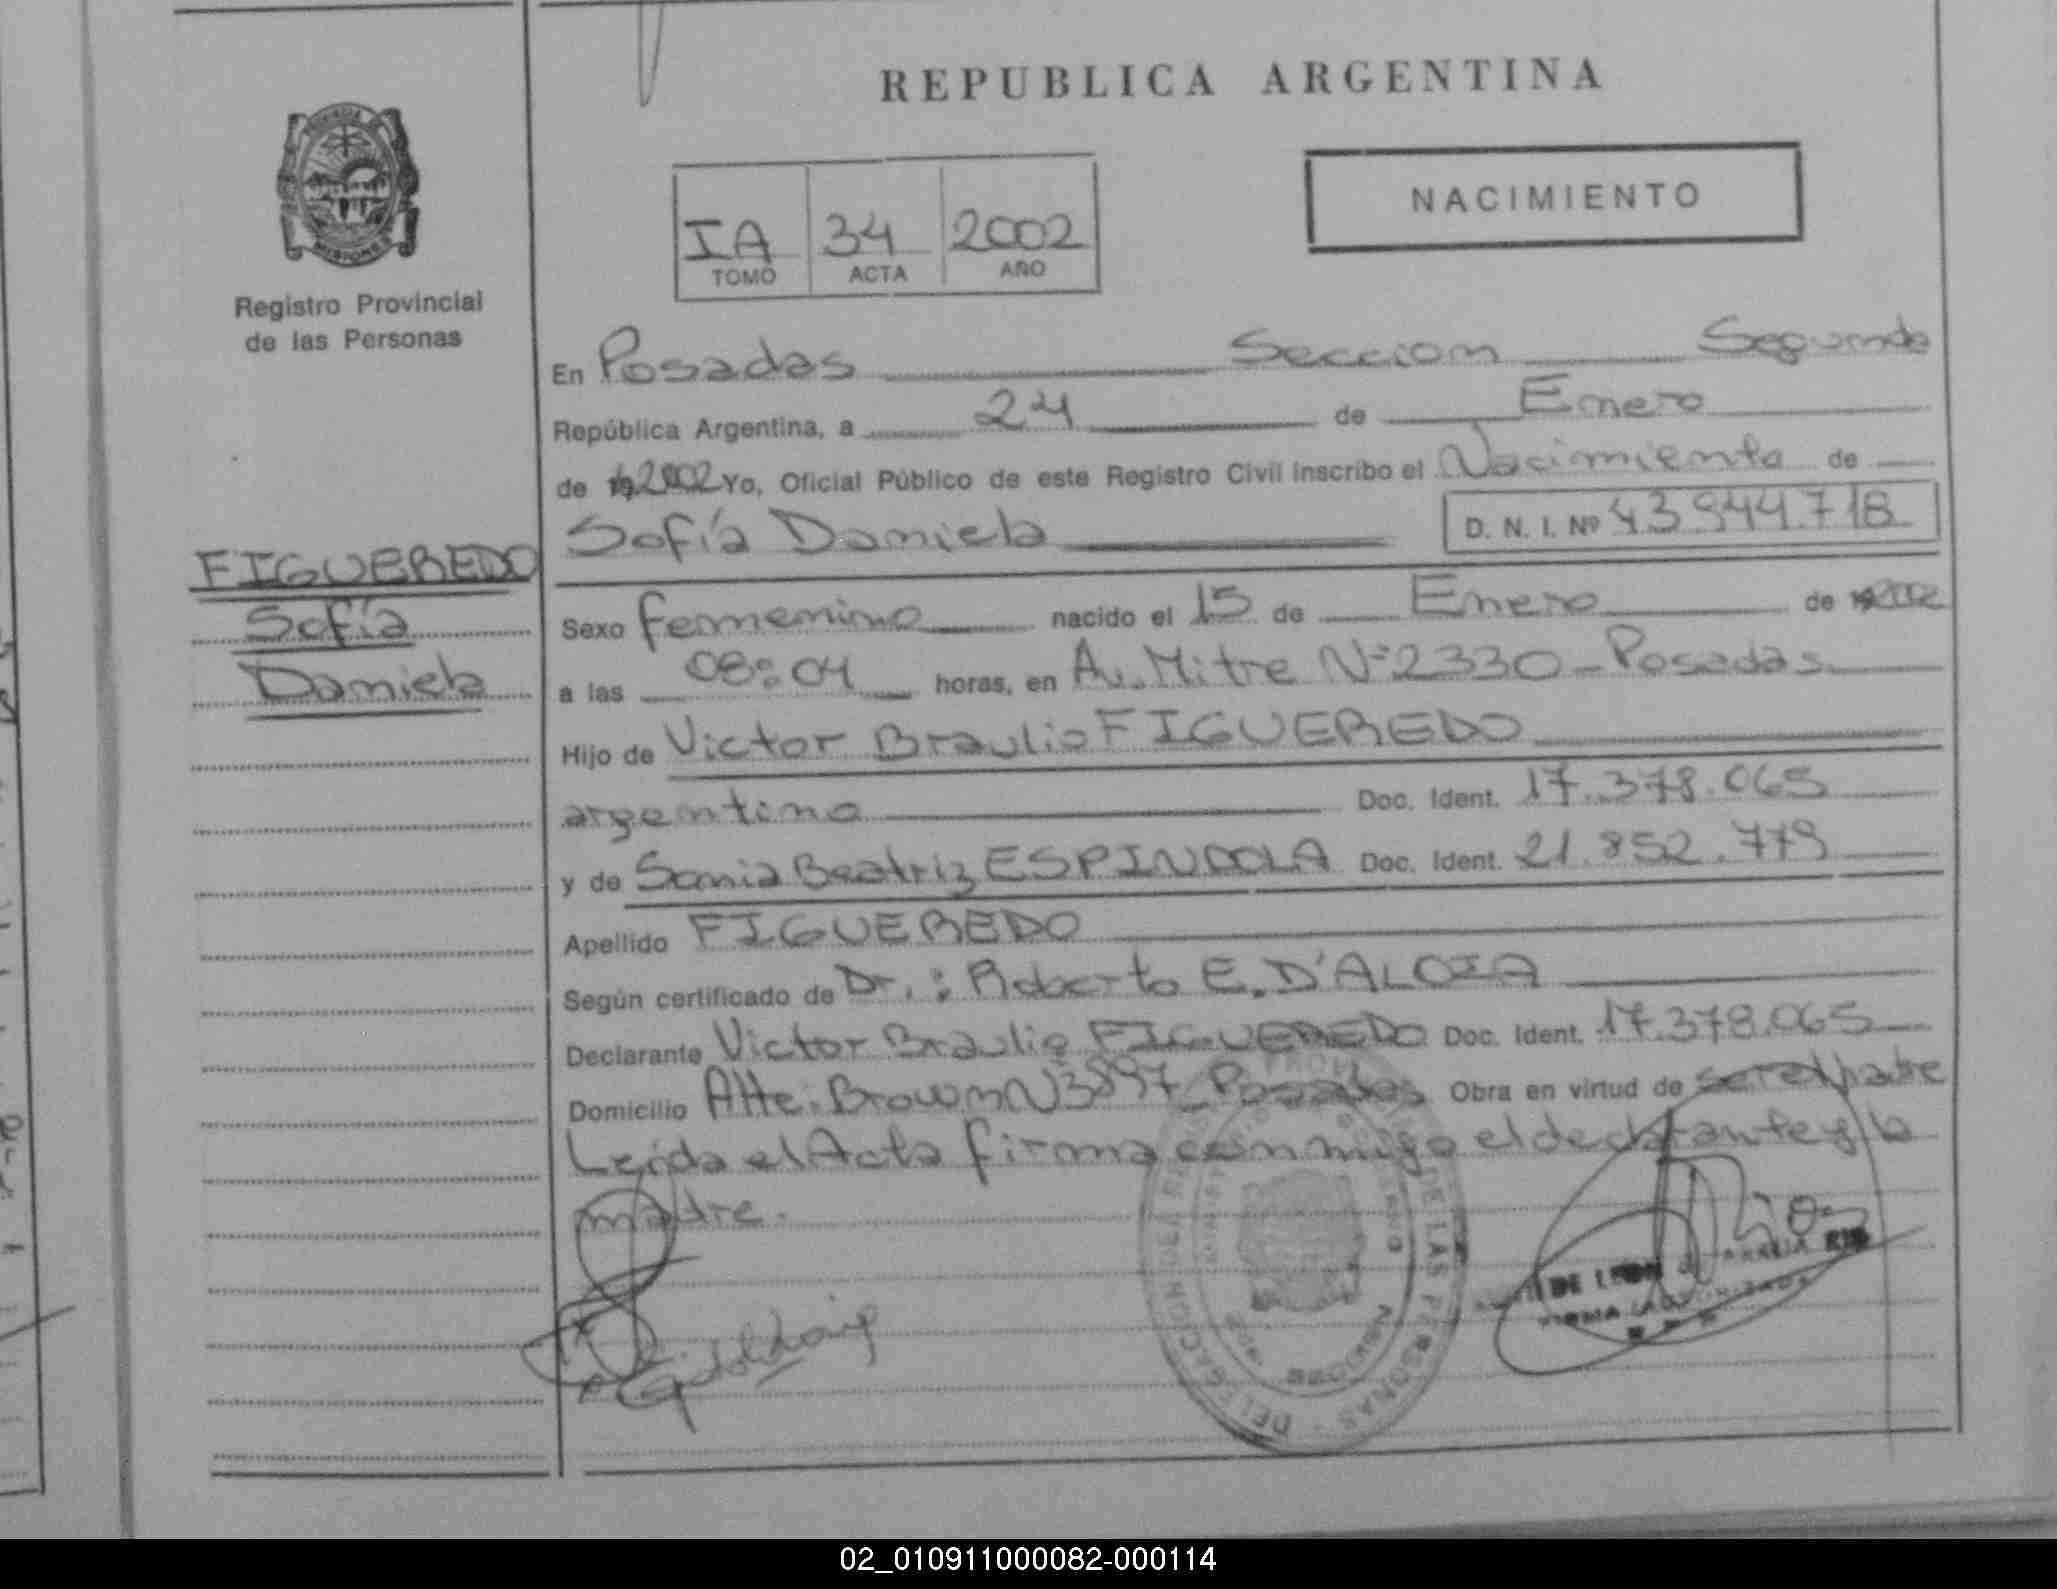 REPUBLICA ARGENTINA
NACIMIENTO
IA 34 2002
TOMO ACTA AÑO
Registro Provincial
de las Personas
En Posadas Seccion Segunda
República Argentina, a 24 de Enero
de 2002 Yo, Oficial Público de este Registro Civil inscribo el Nacimiento de
Sofía Daniela D. N. I. Nº 43.944.718
FIGUEREDO
Sofía
Daniela
Sexo femenino nacido el 15 de Enero de 2002
a las 08:04 horas, en Av. Mitre Nº 2330 - Posadas
Hijo de Victor Braulio FIGUEREDO
argentino Doc. Ident. 17.378.065
y de Sonia Beatriz ESPINDOLA Doc. Ident. 21.852.779
Apellido FIGUEREDO
Según certificado de Dr.: Roberto E. D'ALOIA
Declarante Victor Braulio FIGUEREDO Doc. Ident. 17.378.065
Domicilio Alte. Brown N 3897 Posadas Obra en virtud de ser el padre
Leida el Acta firma conmigo el declarante y la
madre.
DE LEON
02_010911000082-000114